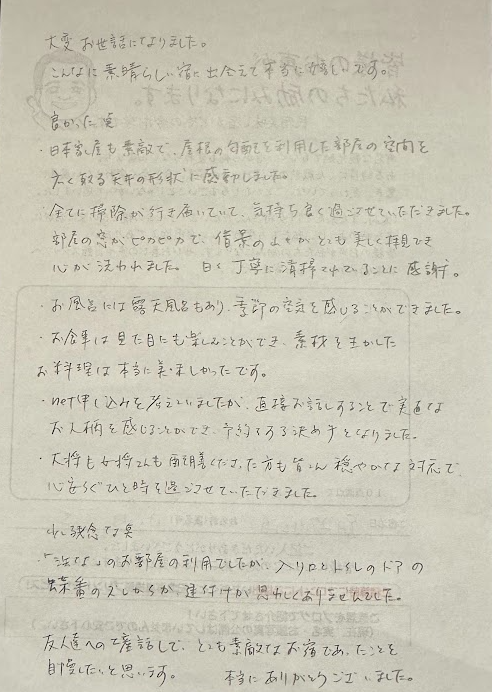 大変お世話になりました。
こんなに素晴らしい宿に出会えて本当に嬉しいです。
良かった点
・日本家屋も素敵で、屋根の勾配を利用した部屋の空間を
広く取る天井の形状に感動しました。
・全てに掃除が行き届いていて、気持ち良く過ごさせていただきました。
部屋の窓がピカピカで、借景のよもがとても美しく拝見でき
心が洗われました。日々丁寧に清掃されていることに感謝。
・お風呂には露天風呂もあり、季節の空気を感じることができました。
・お食事は見た目にも楽しむことができ、素材を生かした
お料理は本当に美味しかったです。
・net申し込みを考えていましたが、直接お話しすることで実直な
お人柄を感じることができ、予約をする決め手となりました。
・大将も女将さんも配膳くださった方も皆さん穏やかな対応で、
心安らぐひと時を過ごさせていただきました。
少し残念な点
・「」のお部屋の利用でしたが、入り口とトイレのドアの
蝶番のズレからか、建付けが思わしくありませんでした。
友人達への土産話しで、とても素敵なお宿であったことを
自慢したいと思います。 本当にありがとうございました。
皆様の
私たちの励みになります。